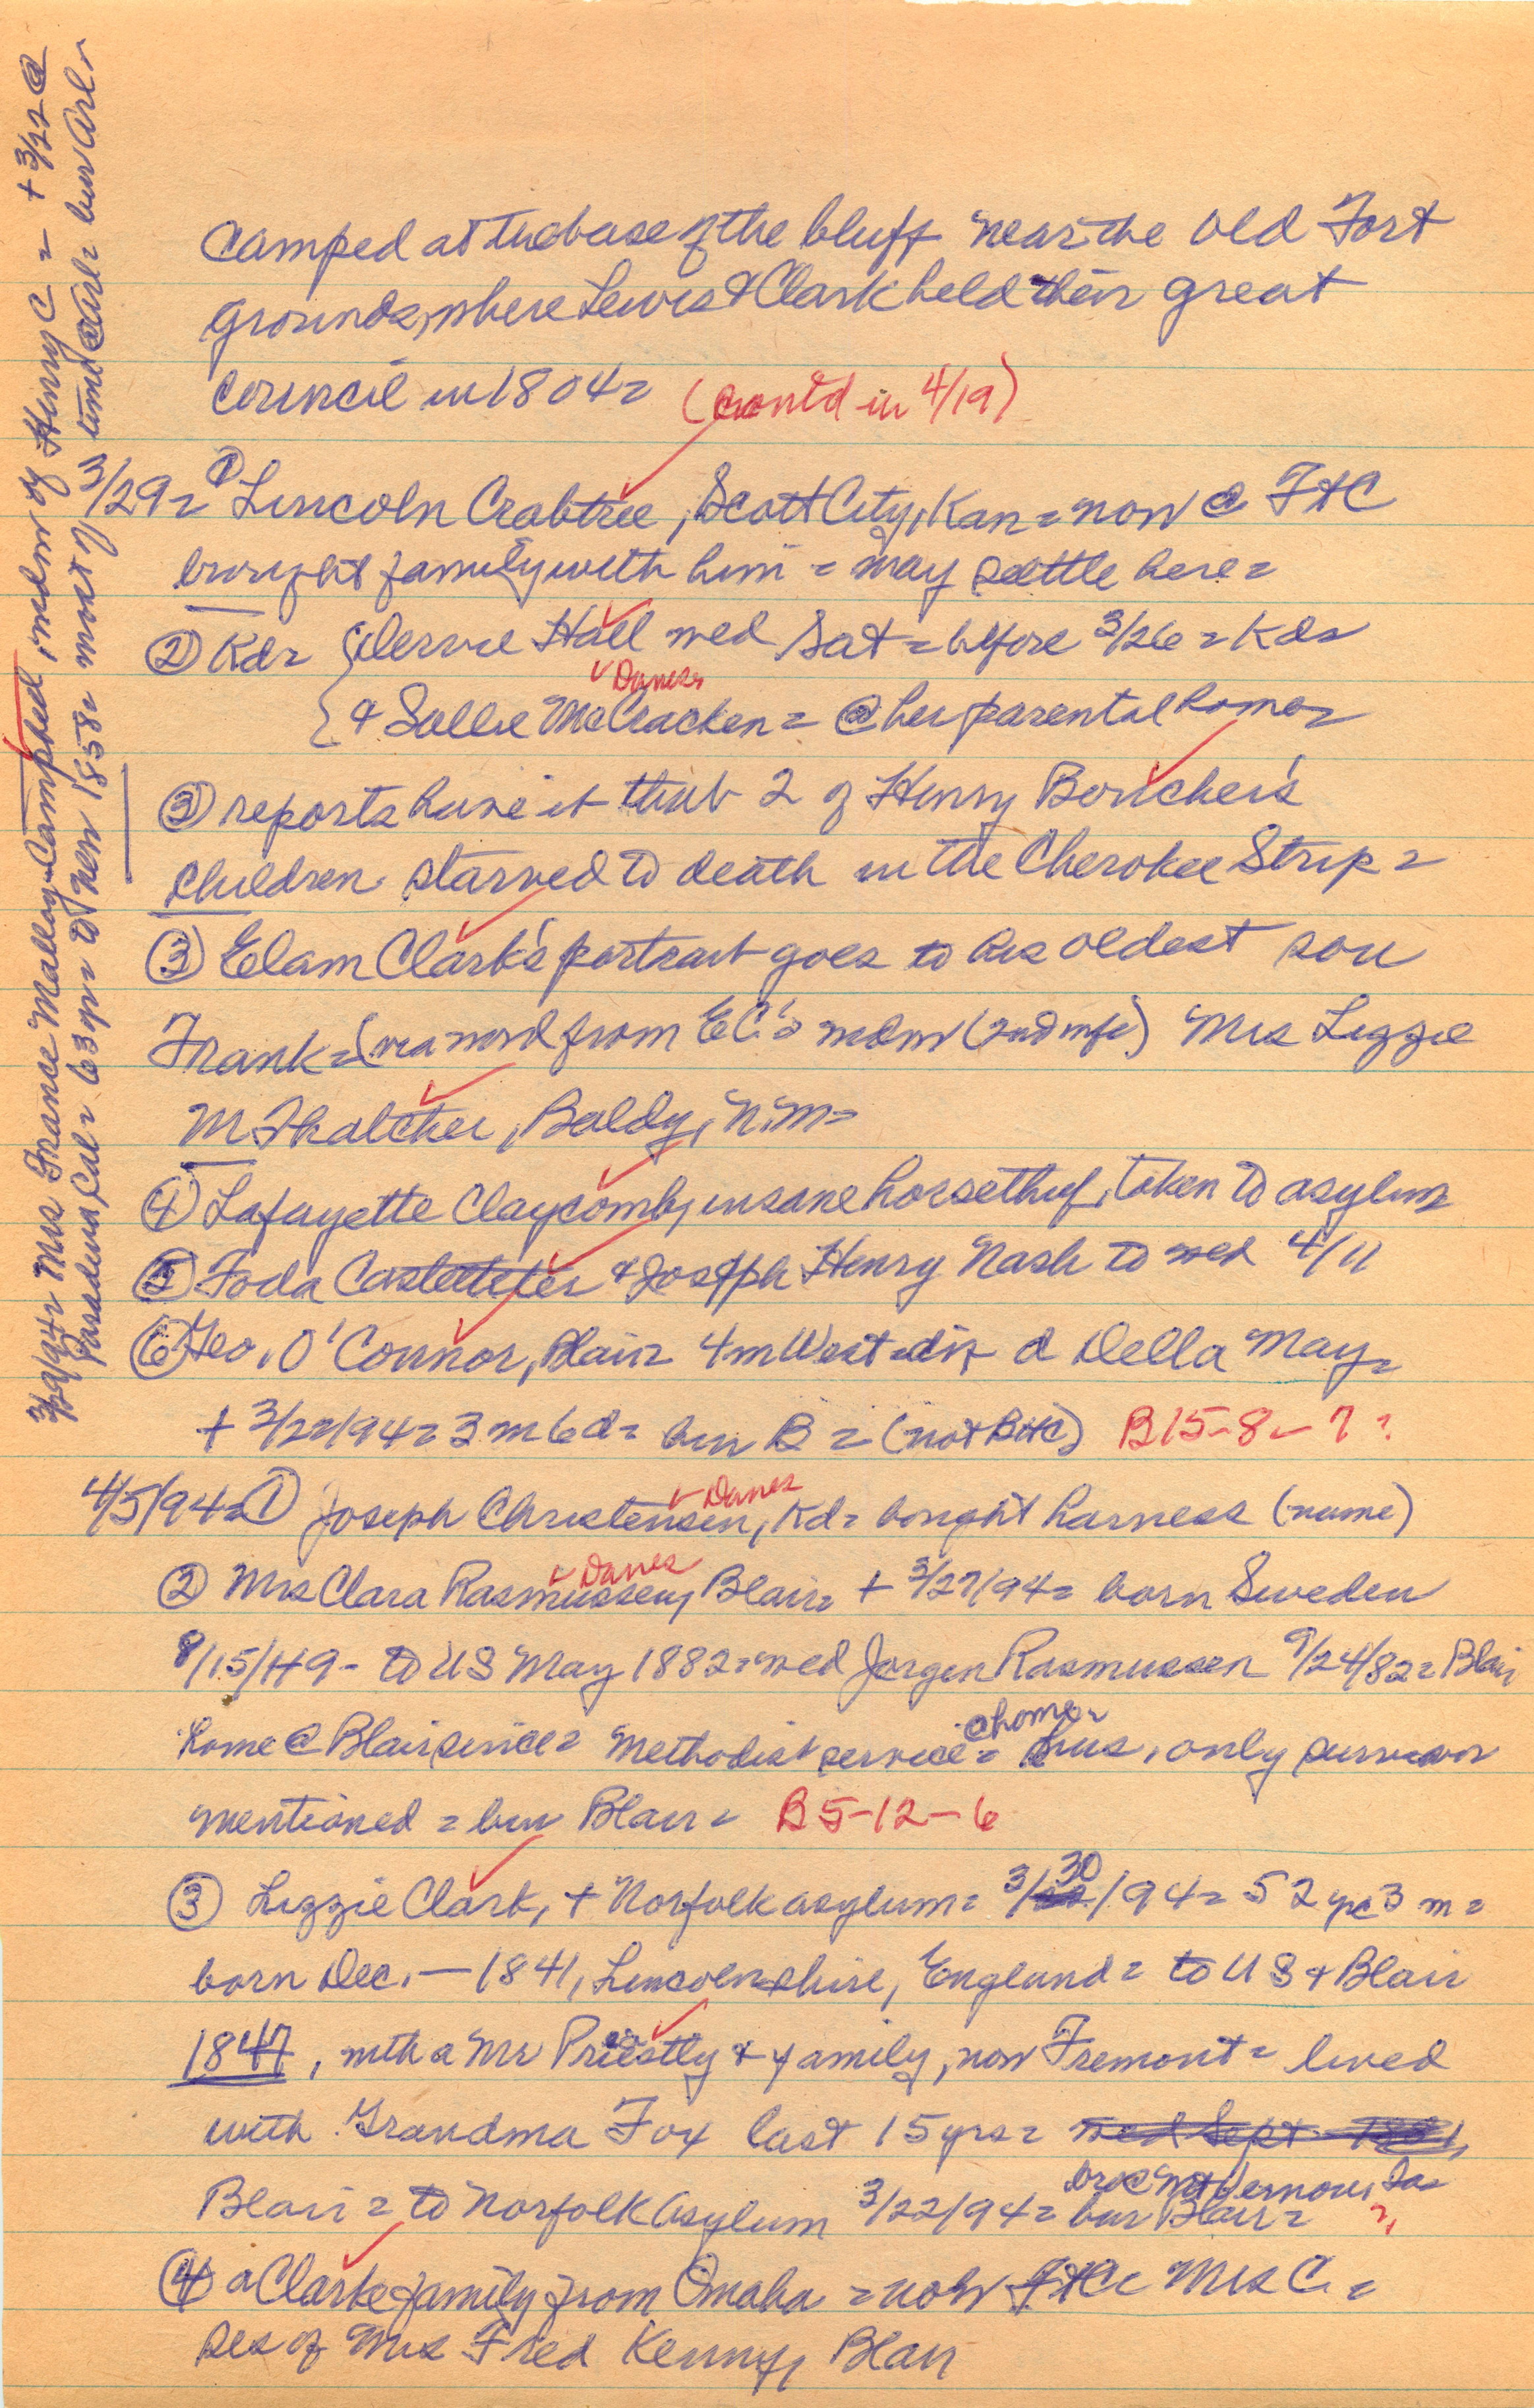 camped at the base of the bluff near the old Fort
grounds, where Lewis & Clark held their great
council in 1804= (cont'd in 4/19)
3/29= ① Lincoln Crabtree, Scott City, Kan = now @ FtC
brought family with him = may settle here=
② Kd= { Hall wed Sat = before 3/26 = Kd=
Danes
{ & Sallie McCracken = @ her parental home=
③ reports have it that 2 of Henry
children starved to death in the Cherokee Strip =
③ Elam Clark's portrait goes to his oldest son
Frank = (via word from EC's wdw (2nd wife) Mrs Lizzie
M Thatcher, Baldy, N.M=
④ Lafayette Claycomb, insane horsethief, taken to asylum
⑤ Foda Castetter & Joseph Henry Nash to wed 4/11
⑥ Geo. O'Connor, Blair 4m West = d Della May=
+ 3/22/94= 3 m 6 d= bur B = (not BHC) B15-8-7?
Danes
4/5/94= ① Joseph Christensen, Kd= bought harness (name)
Danes
② Mrs Clara Rasmussen, Blair= + 3/27/94= born Sweden
8/15/49- to US May 1882= wed Jorgen Rasmussen 9/24/82= Blair
@ home=
home @ Blair since= Methodist service= hus, only survivor
mentioned = bur Blair= B5-12-6
30
③ Lizzie Clark, + Norfolk asylum= 3/22/94= 52 yrs 3 m =
born Dec.—1841, Lincolnshire, England= to US & Blair
1847, with a Mr Priestly & family, now Fremont= lived
with Grandma Fox last 15 yrs= wed Sept 1881,
bro @ Mt Vernon, Ia=
Blair= to Norfolk Asylum 3/22/94= bur Blair= ?
④ a Clark family from Omaha = now FtC= Mrs C. =
sis of Mrs Fred Kenny, Blair
3/29/94= Mrs France Malloy-Camphed, widow of Henry C = + 3/22 @
Pasadena, Cal= 63 yr= to Nebr 1858= most of time @ Arl= bur Arl=